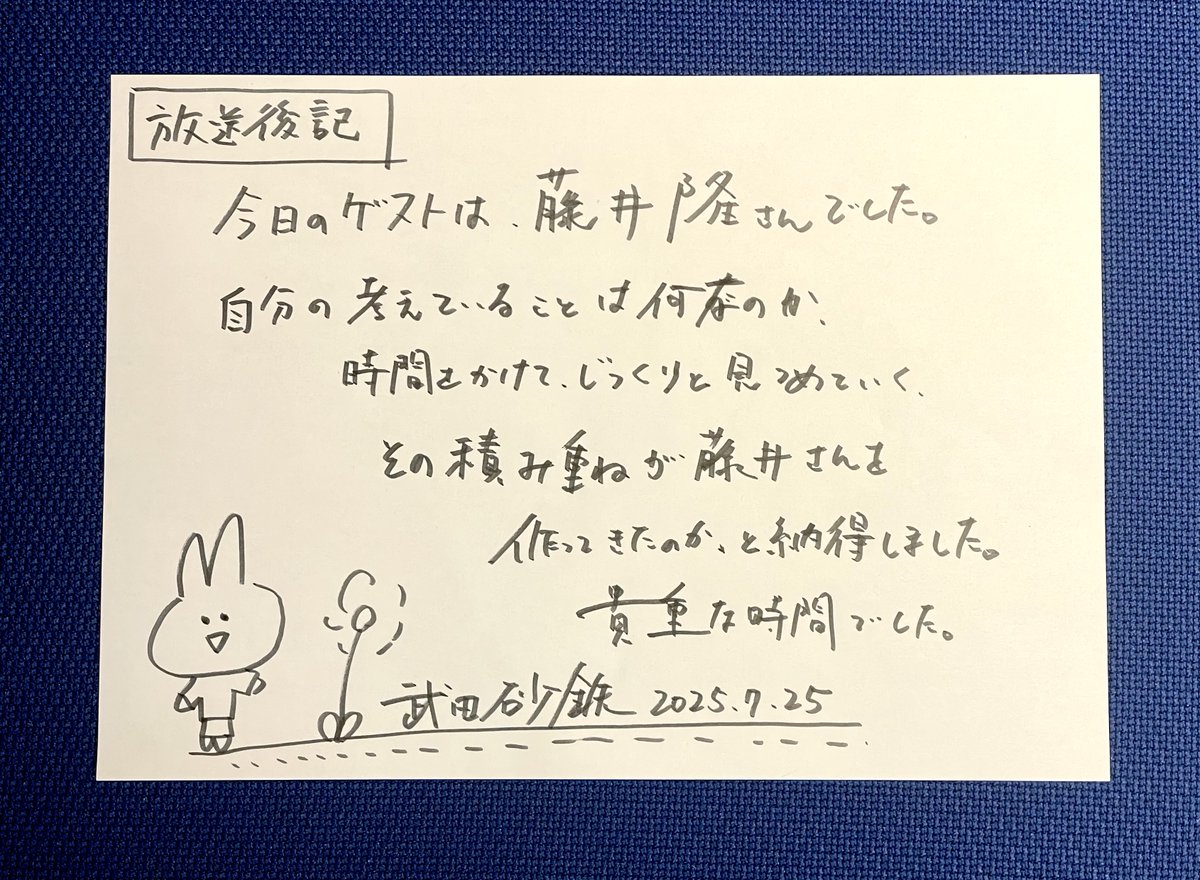 放送後記
今日のゲストは、藤井隆さんでした。
自分の考えていることは何なのか、
時間をかけて、じっくりと見つめていく、
その積み重ねが藤井さんを
作ってきたのか、と納得しました。
貴重な時間でした。
武田砂鉄 2025.7.25